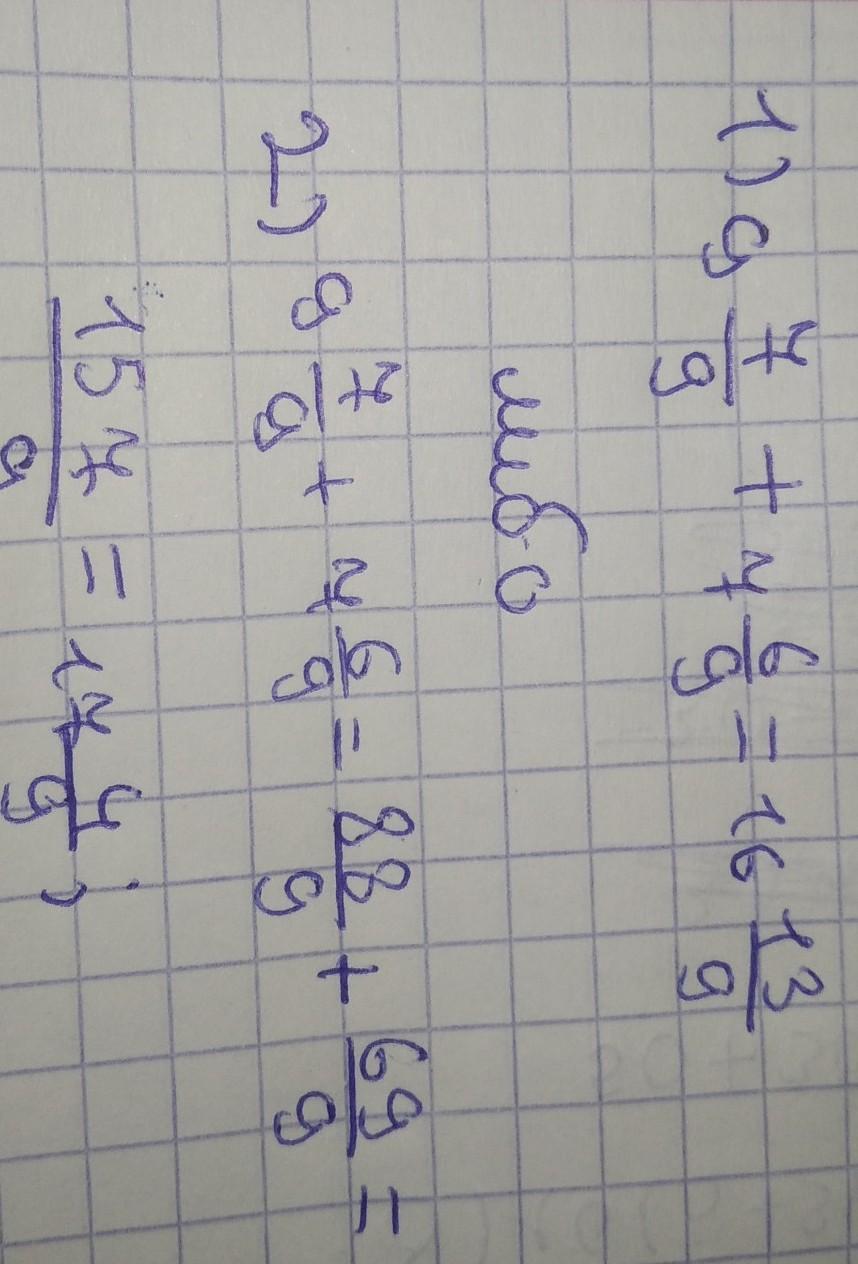 1) 9 7/9 + 7 6/9 = 16 13/9
либо
2) 9 7/9 + 7 6/9 = 88/9 + 69/9 =
157/9 = 17 4/9;